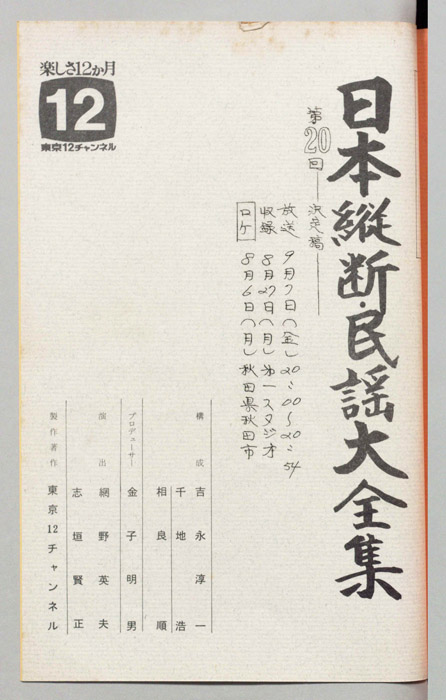 日本縦断・民謡大全集
第20回——決定稿——
放送 9月7日(金)20:00〜20:54
収録 8月27日(月)第一スタジオ
ロケ 8月6日(月)秋田県秋田市
楽しさ12か月
12
東京12チャンネル
構成 吉永淳一
千地浩
相良順
プロデューサー 金子明男
演出 網野英夫
志垣賢正
製作著作 東京12チャンネル